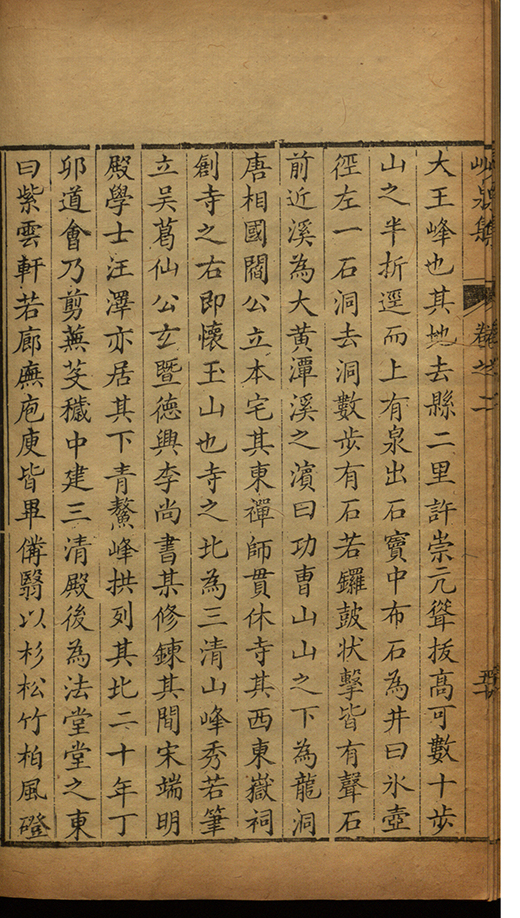 泉集　卷之二
大王峰也其地去縣二里許崇元聳拔髙可數十步
山之半折逕而上有泉出石竇中布石為井曰氷壺
徑左一石洞去洞數步有石若鑼皷状擊皆有聲石
前近溪為大黃潭溪之濱曰功曹山山之下為龍洞
唐相國閻公立本宅其東禪師貫休寺其西東嶽祠
剏寺之右即懷玉山也寺之北為三清山峰秀若筆
立吳葛仙公玄暨德興李尚書某修鍊其間宋端明
殿學士汪澤亦居其下青鰲峰拱列其北二十年丁
夘道會乃剪蕪芟穢中建三清殿後為法堂堂之東
曰紫雲軒若廊廡庖庾皆畢備翳以杉松竹柏風磴